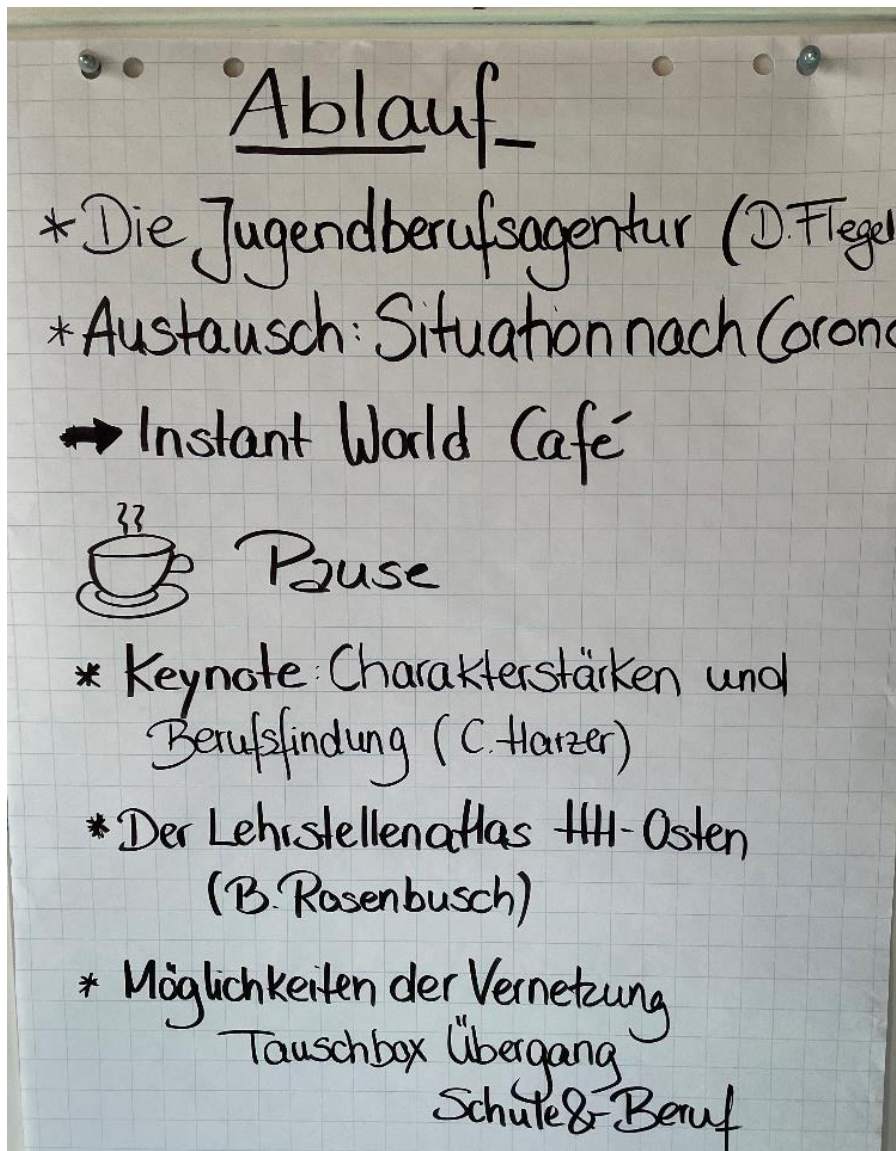 Ablauf
* Die Jugendberufsagentur (D. Flegel
* Austausch: Situation nach Corona
→ Instant World Café
Pause
* Keynote: Charakterstärken und
Berufsfindung (C. Harzer)
* Der Lehrstellenatlas HH-Osten
(B. Rosenbusch)
* Möglichkeiten der Vernetzung
Tauschbox Übergang
Schule & Beruf